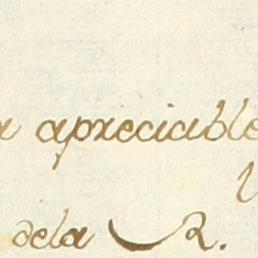 apreciable
dela R.